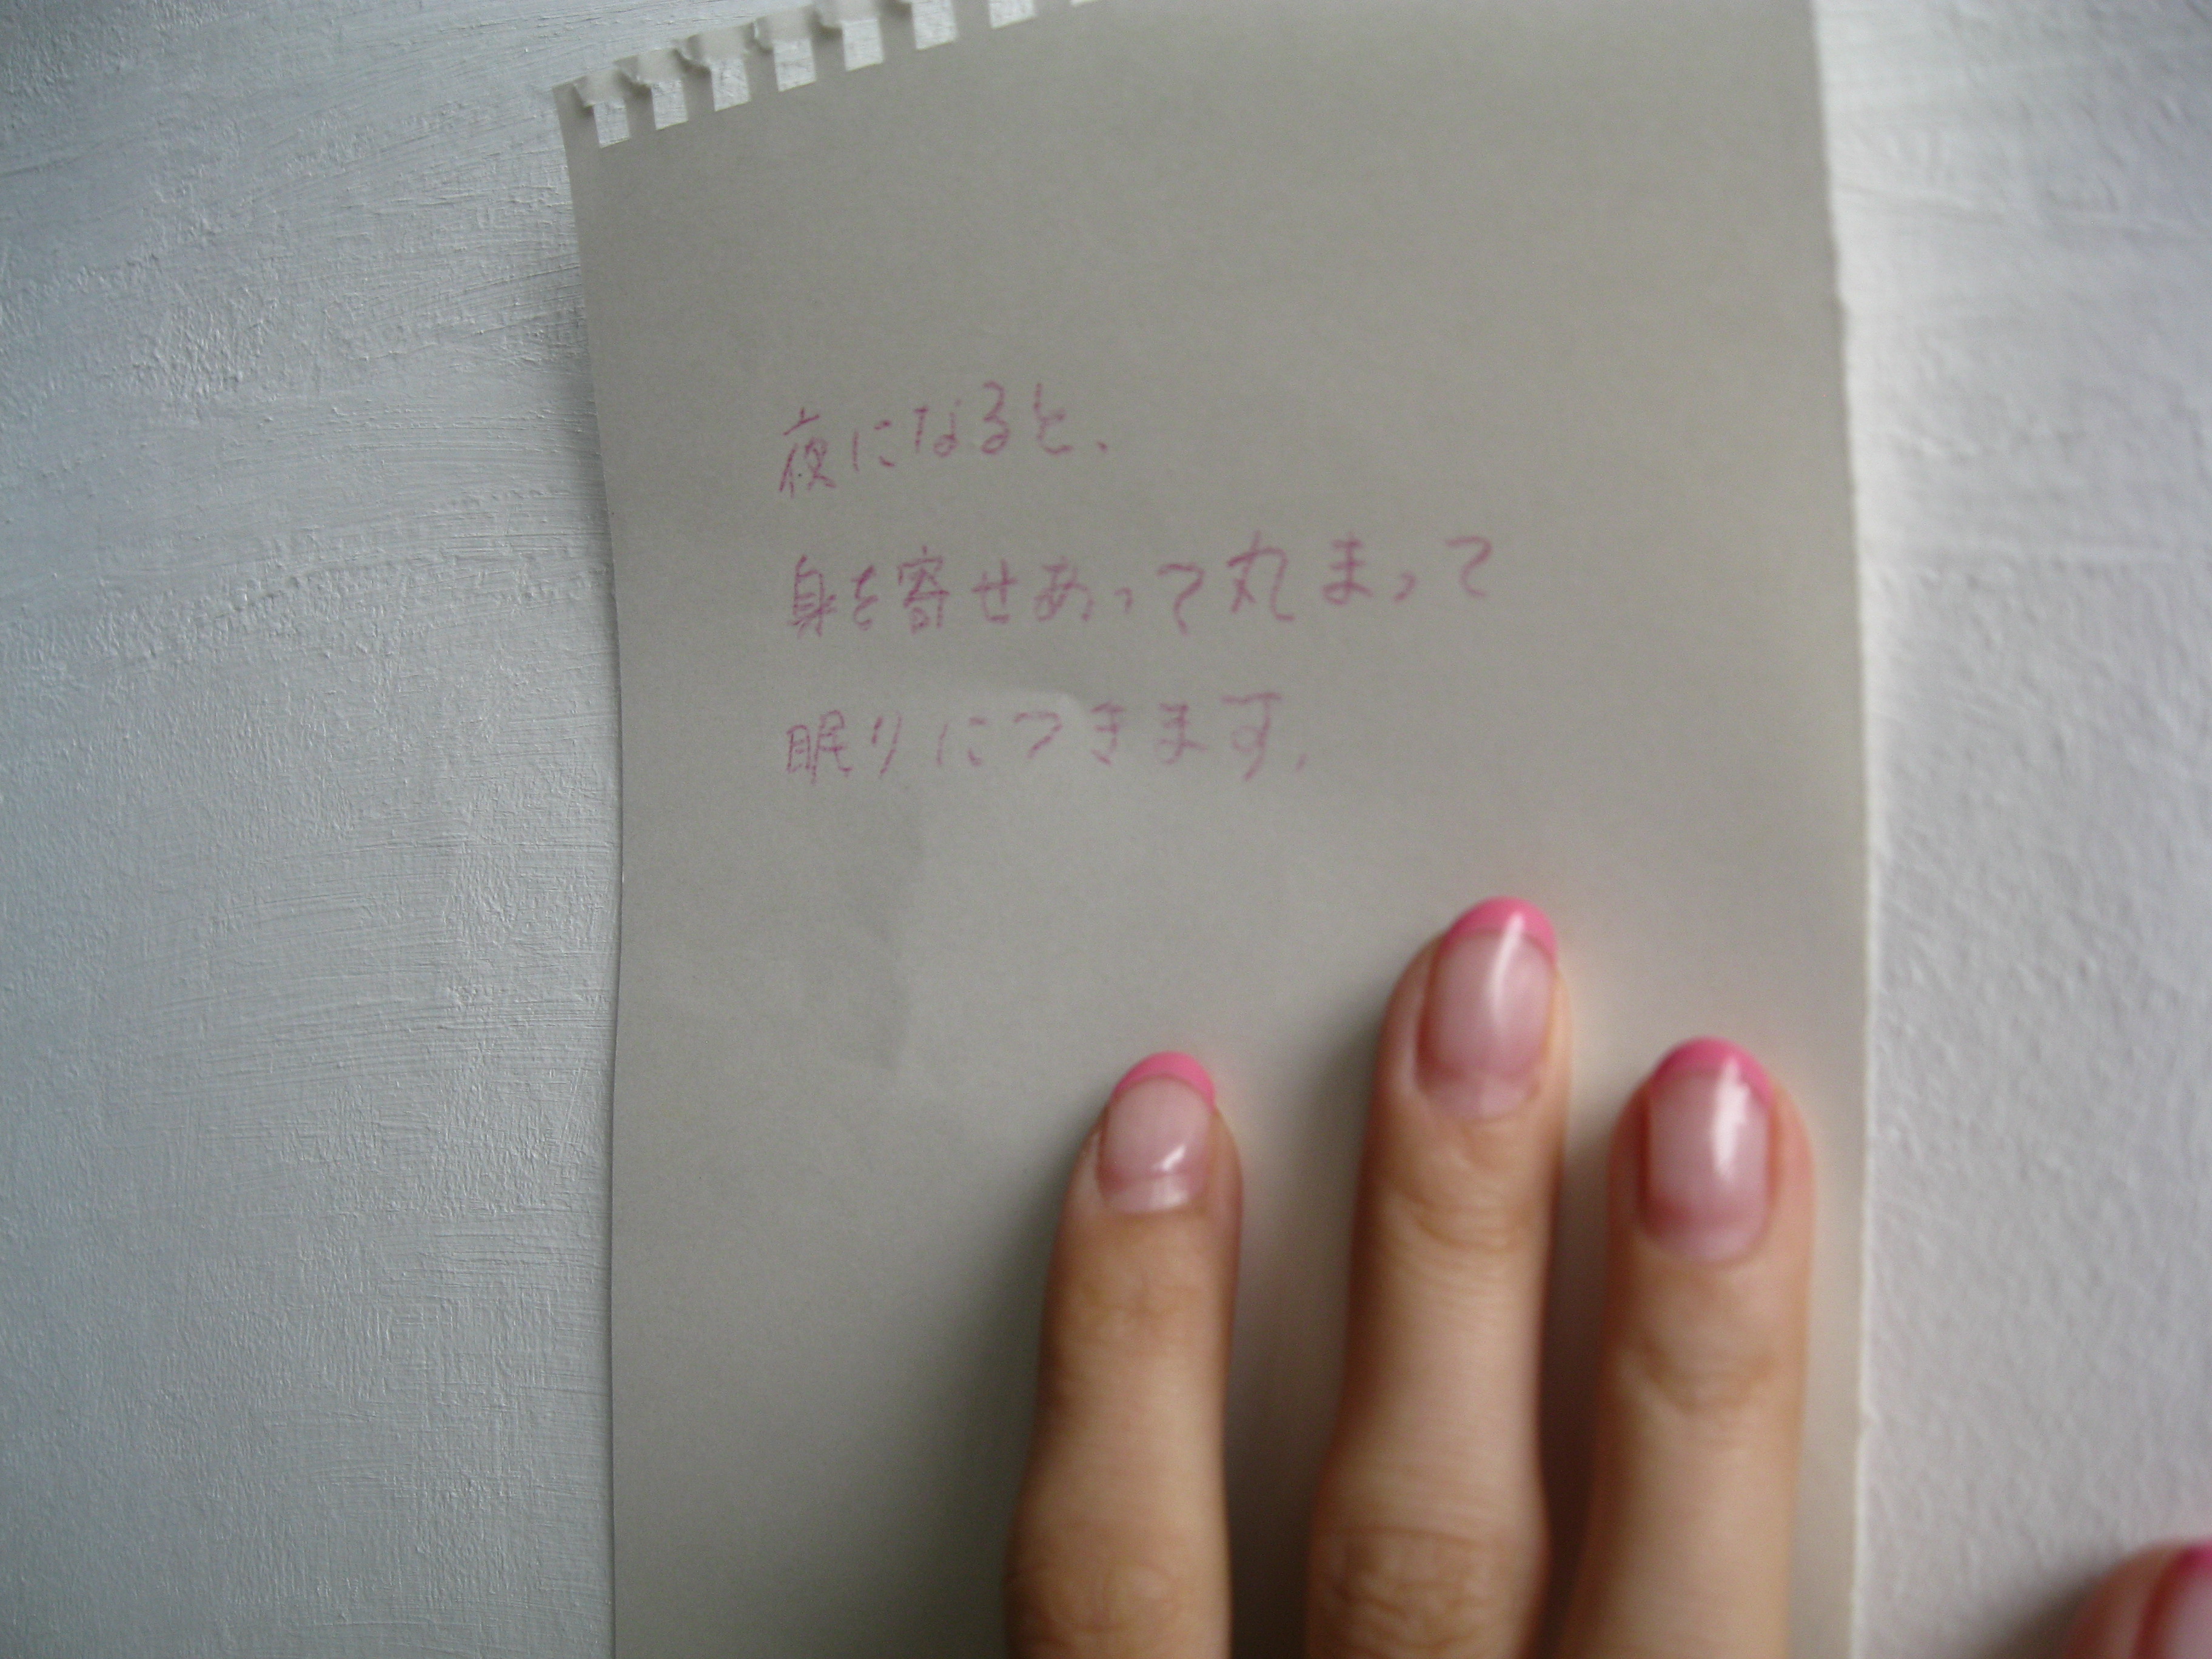 夜になると、
身を寄せあって丸まって
眠りにつきます。